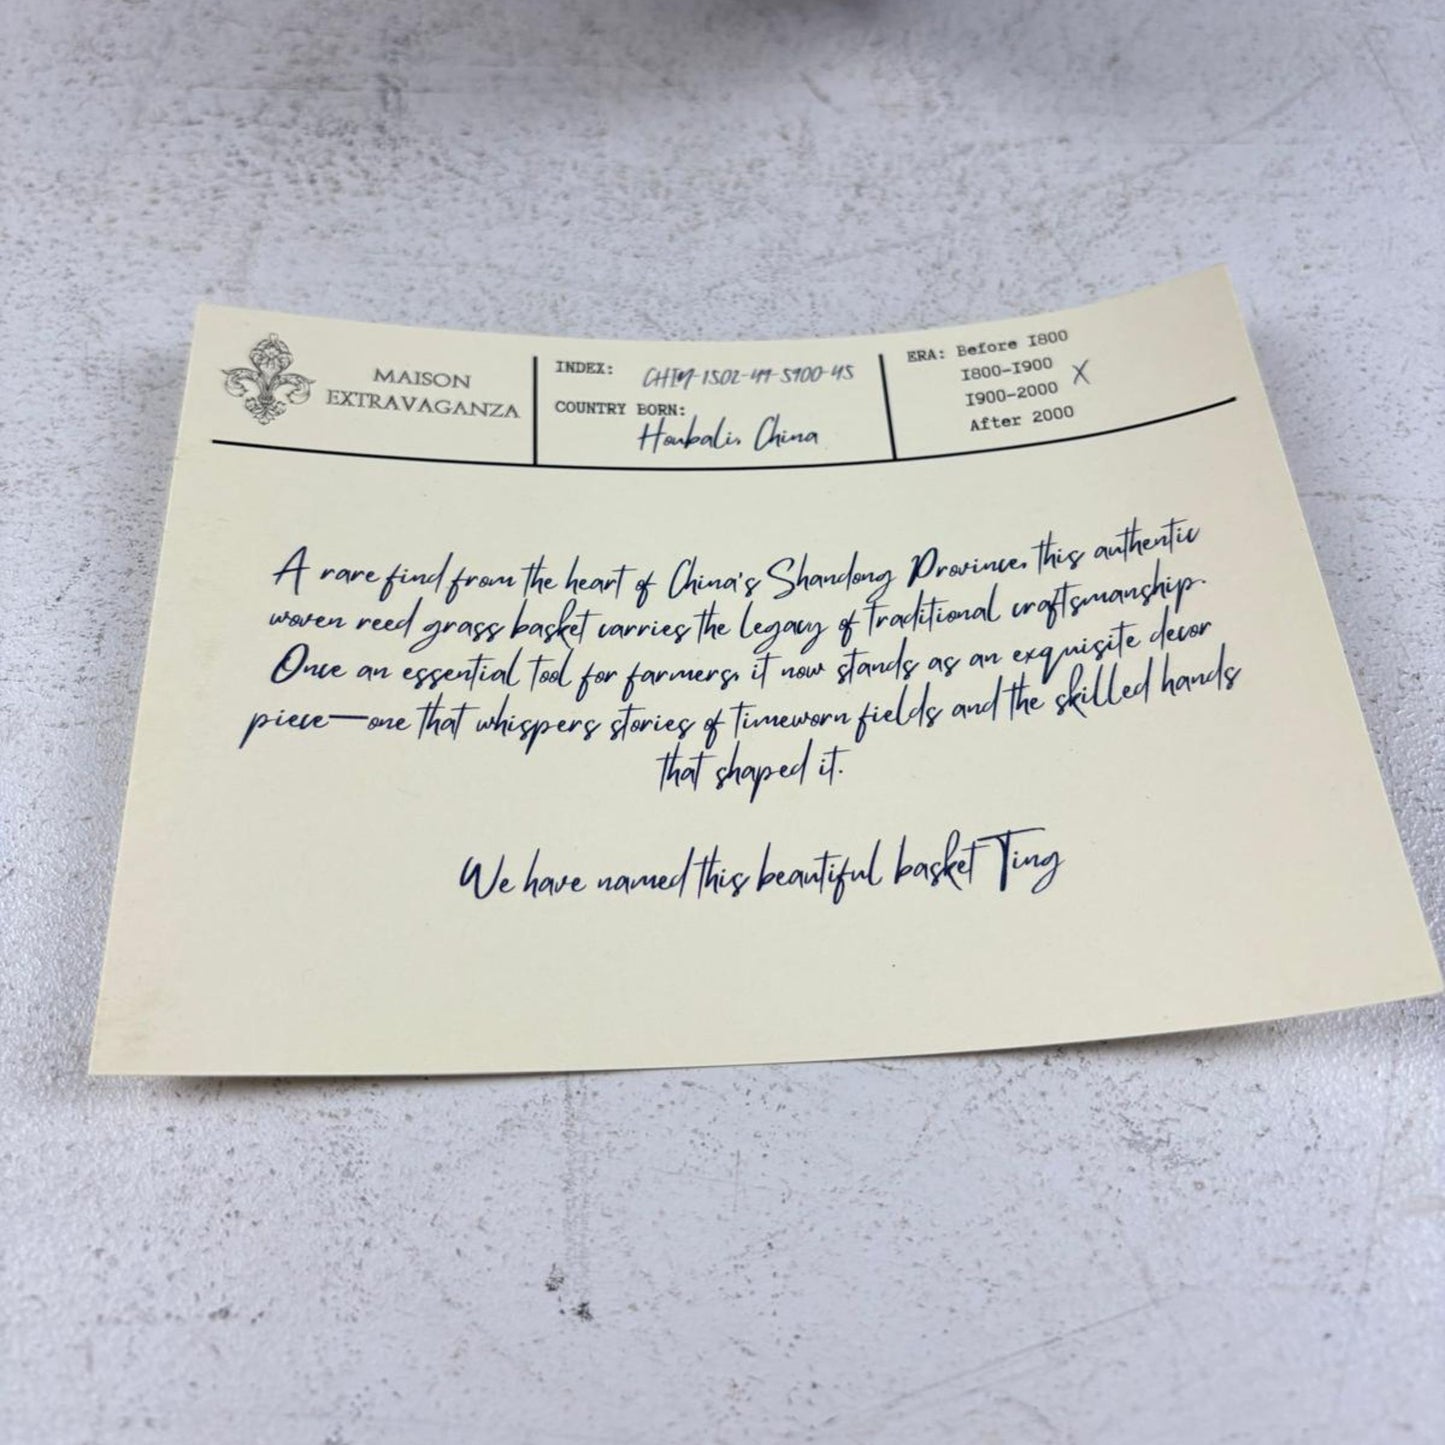 MAISON
EXTRAVAGANZA
INDEX:
COUNTRY BORN:
Houbali, China
ERA: Before 1800
1800-1900
1900-2000 X
After 2000
A rare find from the heart of China's Shandong Province, this authentic
woven reed grass basket carries the legacy of traditional craftsmanship.
Once an essential tool for farmers, it now stands as an exquisite decor
piece—one that whispers stories of timeworn fields and the skilled hands
that shaped it.
We have named this beautiful basket Ting